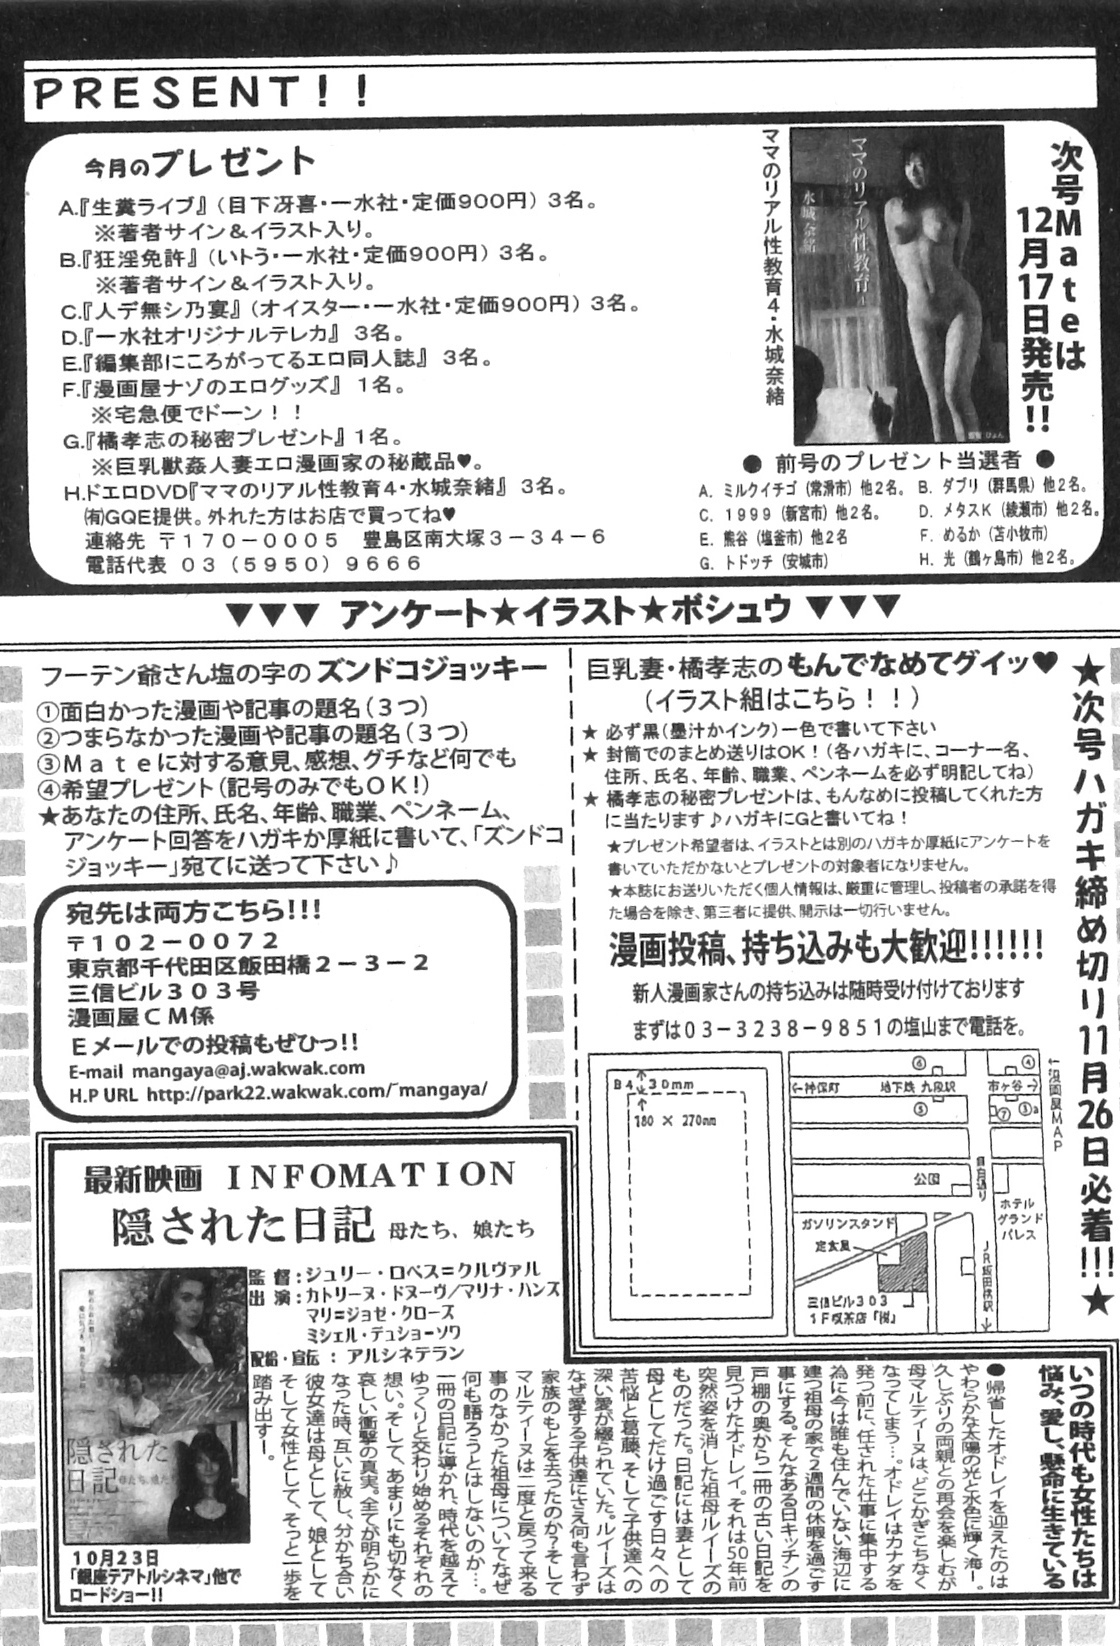 PRESENT!!
今月のプレゼント
A.『生糞ライブ』(目下冴喜・一水社・定価900円) 3名。
※著者サイン＆イラスト入り。
B.『狂淫免許』(いトう・一水社・定価900円) 3名。
※著者サイン＆イラスト入り。
C.『人デ無シ乃宴』(オイスター・一水社・定価900円) 3名。
D.『一水社オリジナルテレカ』 3名。
E.『編集部にころがってるエロ同人誌』 3名。
F.『漫画屋ナゾのエログッズ』 1名。
※宅急便でドーン！！
G.『橘孝志の秘密プレゼント』1名。
※巨乳獣姦人妻エロ漫画家の秘蔵品♥。
H.ドエロDVD『ママのリアル性教育4・水城奈緒』 3名。
㈲GQE提供。外れた方はお店で買ってね♥
連絡先 〒170－0005 豊島区南大塚3－34－6
電話代表 03(5950)9666
ママのリアル性教育4・水城奈緒
ママのリアル性教育4
水城奈緒
次号Mateは
12月17日発売!!
● 前号のプレゼント当選者 ●
A．ミルクイチゴ(常滑市)他2名。
B．ダブリ(群馬県)他2名。
C．1999(新宮市)他2名。
D．メタスK(綾瀬市)他2名。
E．熊谷(塩釜市)他2名
F．めるか(苫小牧市)
G．トドッチ(安城市)
H．光(鶴ヶ島市)他2名。
▼▼▼ アンケート★イラスト★ボシュウ ▼▼▼
フーテン爺さん塩の字の ズンドコジョッキー
①面白かった漫画や記事の題名(3つ)
②つまらなかった漫画や記事の題名(3つ)
③Mateに対する意見、感想、グチなど何でも
④希望プレゼント(記号のみでもOK!)
★あなたの住所、氏名、年齢、職業、ペンネーム、
アンケート回答をハガキか厚紙に書いて、「ズンドコ
ジョッキー」宛てに送って下さい♪
宛先は両方こちら!!!
〒102－0072
東京都千代田区飯田橋2－3－2
三信ビル303号
漫画屋CM係
Eメールでの投稿もぜひっ!!
E-mail mangaya@aj.wakwak.com
H.P URL http://park22.wakwak.com/~mangaya/
巨乳妻・橘孝志の もんでなめてグイッ♥
(イラスト組はこちら！！)
★ 必ず黒(墨汁かインク)一色で書いて下さい
★ 封筒でのまとめ送りはOK！(各ハガキに、コーナー名、
住所、氏名、年齢、職業、ペンネームを必ず明記してね)
★ 橘孝志の秘密プレゼントは、もんなめに投稿してくれた方
に当たります♪ハガキにGと書いてね！
★プレゼント希望者は、イラストとは別のハガキか厚紙にアンケートを
書いていただかないとプレゼントの対象者になりません。
★本誌にお送りいただく個人情報は、厳重に管理し、投稿者の承諾を得
た場合を除き、第三者に提供、開示は一切行いません。
漫画投稿、持ち込みも大歓迎!!!!!!
新人漫画家さんの持ち込みは随時受け付けております
まずは03－3238－9851の塩山まで電話を。
★次号ハガキ締め切り11月26日必着!!!★
B4
30mm
180 × 270mm
←神保町
地下鉄 九段駅
市ヶ谷→
⑥
④
⑤
⑦
③a
目白通り
公園
ガソリンスタンド
ホテル
グランド
パレス
定食屋
三信ビル303
1F喫茶店『桜』
JR飯田橋駅→
←漫画屋MAP
最新映画 INFOMATION
隠された日記 母たち、娘たち
監督：ジュリー・ロペス＝クルヴァル
出演：カトリーヌ・ドヌーヴ/マリナ・ハンズ
マリ=ジョゼ・クローズ
ミシェル・デュショーソワ
配給・宣伝：アルシネテラン
隠された
日記
母たち、娘たち
10月23日
「銀座テアトルシネマ」他で
ロードショー!!
いつの時代も女性たちは
悩み、愛し、懸命に生きている
●帰省したオドレイを迎えたのは
やわらかな太陽の光と水色に輝く海―。
久しぶりの両親との再会を楽しむが
母マルティーヌは、どこかぎこちなく
なってしまう…。オドレイはカナダを
発つ前に、任された仕事に集中する
為に今は誰も住んでいない海辺に
建つ祖母の家で2週間の休暇を過ごす
事にする。そんなある日キッチンの
戸棚の奥から一冊の古い日記を
見つけたオドレイ。それは50年前
突然姿を消した祖母ルイーズの
ものだった。日記には妻として
母としてだけ過ごす日々への
苦悩と葛藤、そして子供達への
深い愛が綴られていた。ルイーズは
なぜ愛する子供達にさえ何も言わず
家族のもとを去ったのか？そして
マルティーヌは二度と戻って来る
事のなかった祖母についてなぜ
何も語ろうとはしないのか…。
一冊の日記に導かれ、時代を越えて
ゆっくりと交わり始めるそれぞれの
想い。そして、あまりにも切なく
哀しい衝撃の真実。全てが明らかに
なった時、互いに赦し、分かち合い
彼女達は母として、娘として
そして女性として、そっと一歩を
踏み出す―。